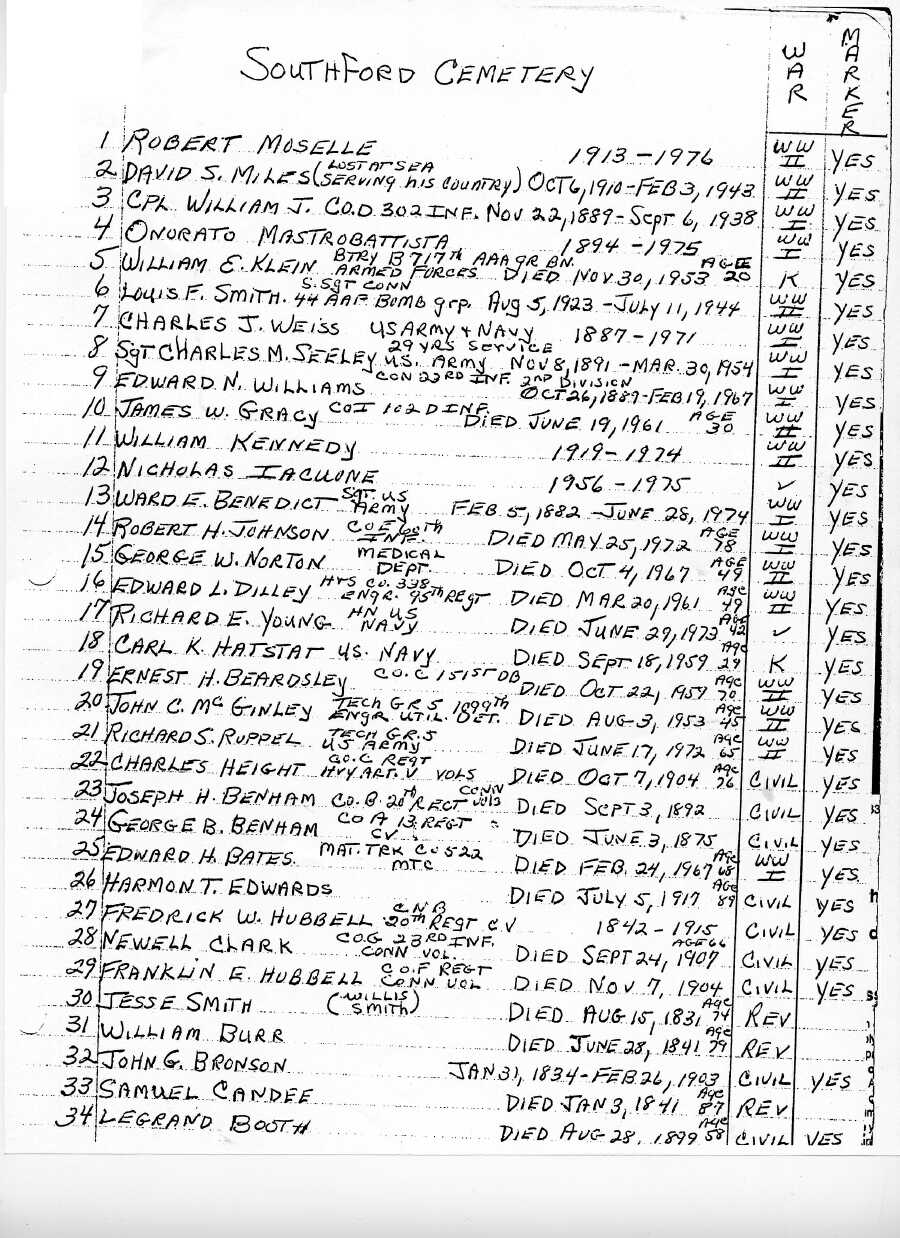 SOUTHFORD CEMETERY
WAR
MARKER
1 ROBERT MOSELLE 1913-1976 WW II YES
2 DAVID S. MILES (LOST AT SEA SERVING HIS COUNTRY) OCT 6, 1910-FEB 3, 1943 WW II YES
3 CPL WILLIAM J. CO.D 302 INF. NOV 22, 1889-SEPT 6, 1938 WW I YES
4 ONORATO MASTROBATTISTA 1894-1975 WW I YES
5 WILLIAM E. KLEIN BTRY B 717th AAA GR BN. ARMED FORCES DIED NOV 30, 1953 AGE 20 K YES
6 LOUIS F. SMITH. S. SGT CONN 44 AAF BOMB grp. Aug 5, 1923-JULY 11, 1944 WW II YES
7 CHARLES J. WEISS US ARMY & NAVY 29 YRS SERVICE 1887-1971 WW I YES
8 SgT CHARLES M. SEELEY U.S. ARMY NOV 8, 1891-MAR. 30, 1954 WW I YES
9 EDWARD N. WILLIAMS CON 23RD INF. 2ND DIVISION OCT 26, 1889-FEB 19, 1967 WW I YES
10 JAMES W. GRACY CO I 102 D INF. DIED JUNE 19, 1961 AGE 30 WW II YES
11 WILLIAM KENNEDY 1919-1974 WW II YES
12 NICHOLAS IACUONE 1956-1975 ✓ YES
13 WARD E. BENEDICT SgT. US Army FEB 5, 1882-JUNE 28, 1974 WW I YES
14 ROBERT H. JOHNSON CO E 60th INF. DIED MAY 25, 1972 AGE 78 WW I YES
15 GEORGE W. NORTON MEDICAL DEPT. DIED OCT 4, 1967 AGE 49 WW II YES
16 EDWARD L. DILLEY HTS CO. 338 ENGR. 95th REGT DIED MAR 20, 1961 Age 49 WW II YES
17 RICHARD E. YOUNG HN US NAVY DIED JUNE 29, 1973 Age 42 ✓ YES
18 CARL K. HATSTAT US. NAVY DIED SEPT 18, 1959 Age 29 K YES
19 ERNEST H. BEARDSLEY CO. C 151ST DB DIED OCT 22, 1959 Age 70 WW II YES
20 JOHN C. McGINLEY TECH GR 5 1899th ENGR UTIL. DET. DIED AUG 3, 1953 Age 45 WW II YES
21 RICHARD S. RUPPEL TECH GR. 5 US ARMY DIED JUNE 17, 1972 Age 65 WW II YES
22 CHARLES HEIGHT CO. C REGT HVY ART. V VOLS DIED OCT 7, 1904 Age 76 CIVIL YES
23 JOSEPH H. BENHAM CO. B. 20th REGT CONN VOLS DIED SEPT 3, 1892 CIVIL YES
24 GEORGE B. BENHAM CO A 13 REGT CV DIED JUNE 3, 1875 CIVIL YES
25 EDWARD H. BATES. MAT. TRK CO 522 MTC DIED FEB. 24, 1967 Age 68 WW I YES
26 HARMON T. EDWARDS DIED JULY 5, 1917 AGE 89 CIVIL YES
27 FREDRICK W. HUBBELL C N B 20th REGT C V 1842-1915 CIVIL YES
28 NEWELL CLARK CO. G 23RD INF. CONN VOL. DIED SEPT 24, 1907 AGE 66 CIVIL YES
29 FRANKLIN E. HUBBELL CO. F REGT CONN VOL DIED NOV 7, 1904 CIVIL YES
30 JESSE SMITH (WILLIS SMITH) DIED AUG 15, 1831 Age 74 REV
31 WILLIAM BURR DIED JUNE 28, 1841 Age 79 REV
32 JOHN G. BRONSON JAN 31, 1834-FEB 26, 1903 CIVIL YES
33 SAMUEL CANDEE DIED JAN 3, 1841 Age 87 REV
34 LEGRAND BOOTH DIED AUG 28, 1899 Age 58 CIVIL YES